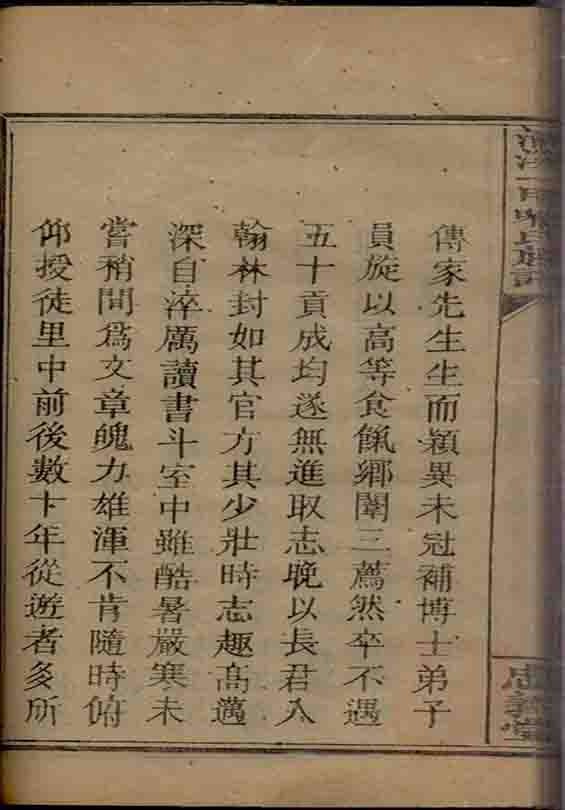 傳家先生生而穎異未冠補博士弟子
員旋以高等食餼鄉闈三薦然卒不遇
五十貢成均遂無進取志晚以長君入
翰林封如其官方其少壯時志趣高邁
深自淬厲讀書斗室中雖酷暑嚴寒未
嘗稍間爲文章魄力雄渾不肯隨時俯
仰授徒里中前後數十年從遊者多所